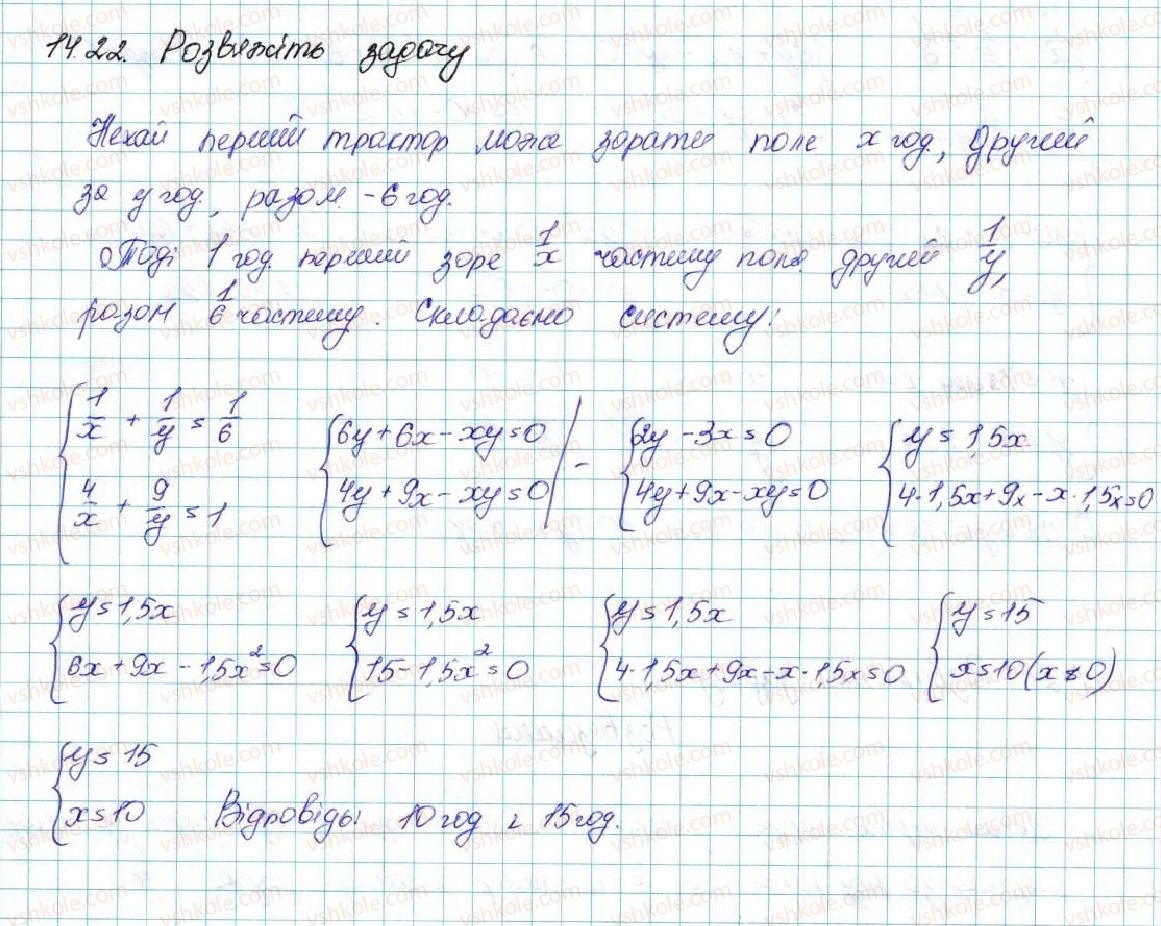 14.22. Розвяжіть задачу
Нехай перший трактор може зорати поле x год, другий
за y год, разом - 6 год.
Тоді 1 год. перший зоре 1/x частину поля другий 1/y,
разом 1/6 частину. Складаємо систему:
{1/x + 1/y = 1/6 {6y + 6x - xy = 0 / - {2y - 3x = 0 {y = 1,5x
4/x + 9/y = 1 4y + 9x - xy = 0 4y + 9x - xy = 0 4·1,5x + 9x - x·1,5x = 0
{y = 1,5x {y = 1,5x {y = 1,5x {y = 15
6x + 9x - 1,5x² = 0 15 - 1,5x² = 0 4·1,5x + 9x - x·1,5x = 0 x = 10 (x ≠ 0)
{y = 15
x = 10 Відповідь: 10 год і 15 год.